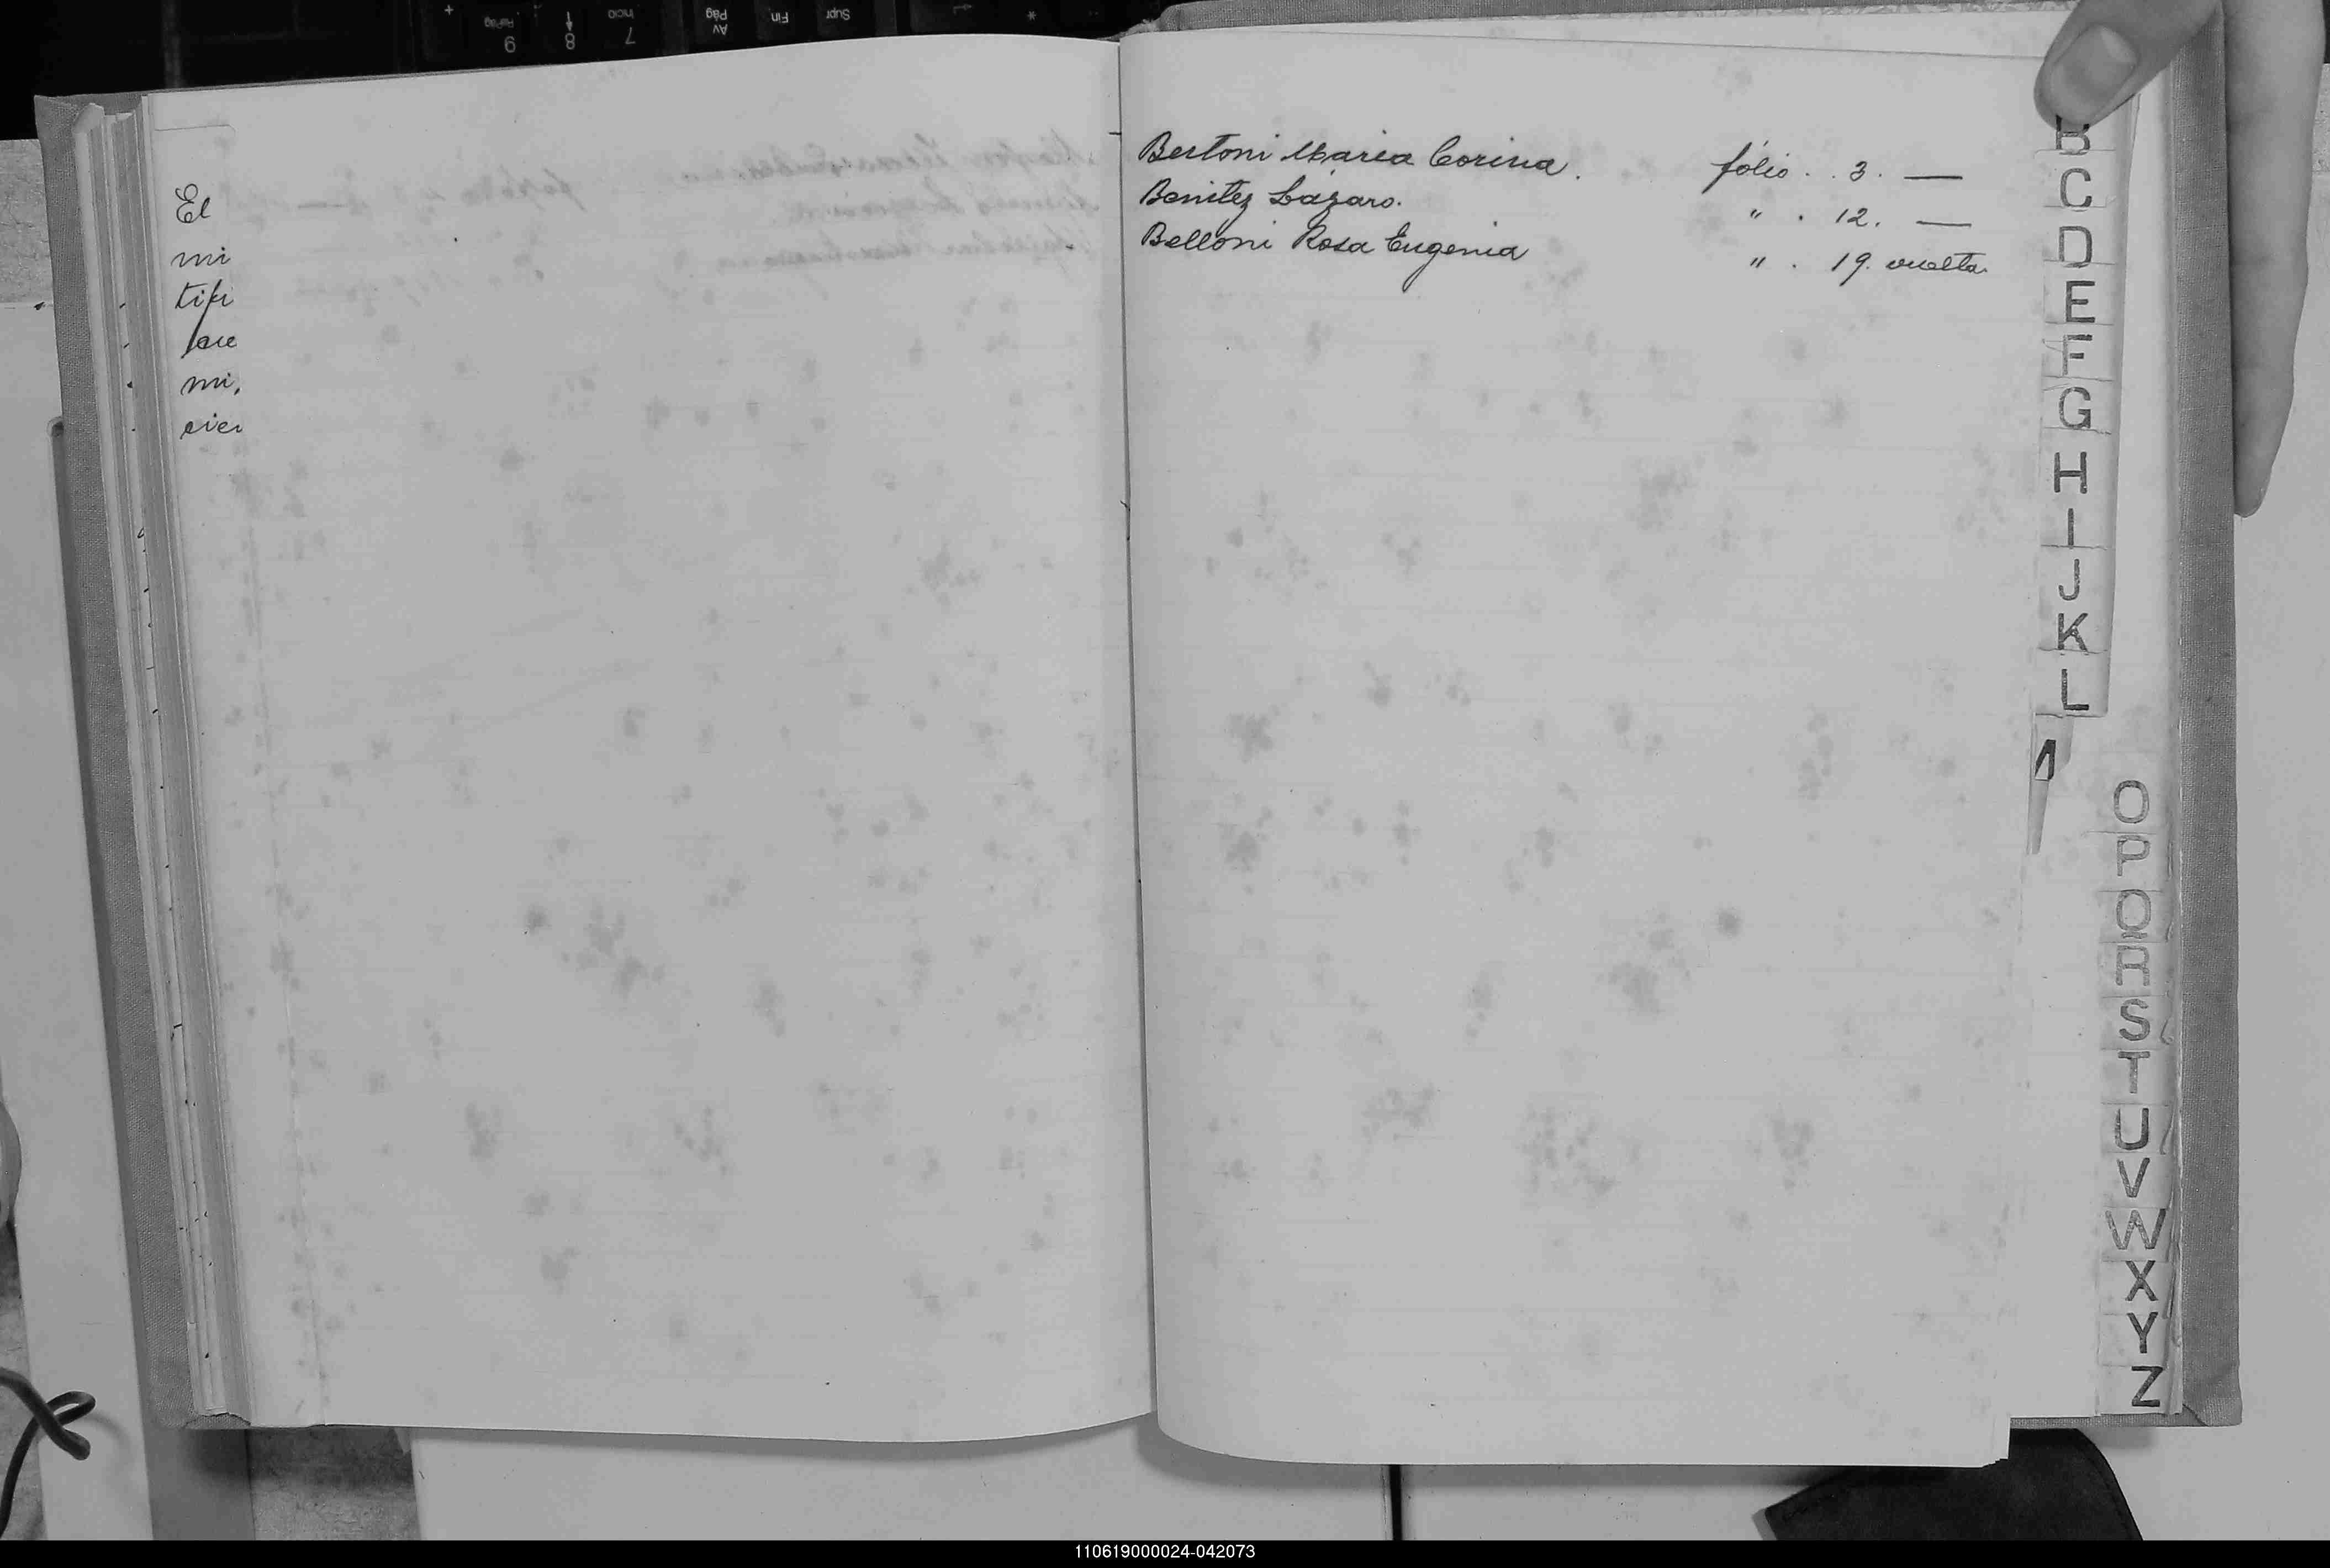 El
mi
mi,
Bertoni Maria Corina. fólio . . 3. —
Benitez Lázaro. " . 12. —
Belloni Rosa Eugenia " . 19. vuelta.
B
C
D
E
F
G
H
I
J
K
L
O
P
Q
R
S
T
U
V
W
X
Y
Z
+
9
RePág
8
7
Inicio
Av
Pág
Fin
Supr
*
110619000024-042073